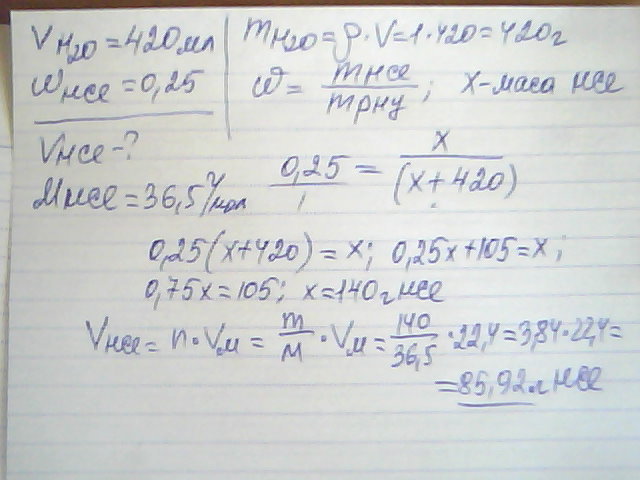 V H₂O = 420 мл
ω HCl = 0,25
V HCl - ?
M HCl = 36,5 г/мол
m H₂O = ρ · V = 1 · 420 = 420 г
ω = m HCl / m р-ну ; x - маса HCl
0,25 = x / (x + 420)
0,25(x+420) = x; 0,25x + 105 = x;
0,75x = 105; x = 140 г HCl
V HCl = n · Vм = m/M · Vм = 140/36,5 · 22,4 = 3,84 · 22,4 =
= 85,92 л HCl